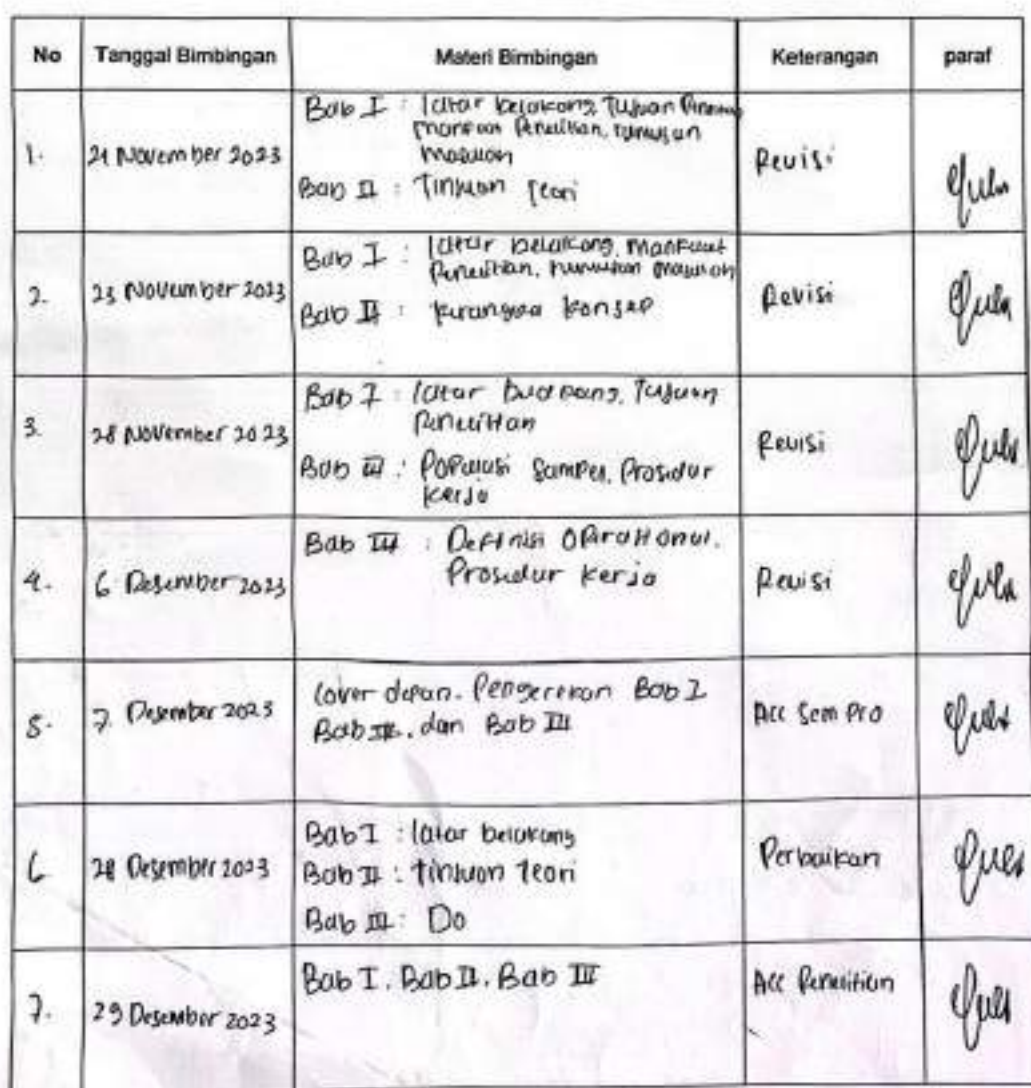 No Tanggal Bimbingan Materi Bimbingan Keterangan paraf
1. 21 November 2023 Bab I : latar belakang, Tujuan
manfaat Penelitian, rumusan
masalah
Bab II : Tinjuan Teori
Revisi
2. 23 November 2023 Bab I : latar belakang, manfaat
Penelitian, rumusan masalah
Bab II : kerangka konsep
Revisi
3. 28 November 2023 Bab I : latar belakang, Tujuan
Penelitian
Bab III : Populasi Sampel, Prosedur
kerja
Revisi
4. 6 Desember 2023 Bab III : Definisi Operational.
Prosedur kerja
Revisi
5. 7 Desember 2023 Cover depan. Pengecekan Bab I
Bab II, dan Bab III
Acc Sem Pro
6 28 Desember 2023 Bab I : latar belakang
Bab II : tinjuan teori
Bab III : Do
Perbaikan
7. 29 Desember 2023 Bab I. Bab II. Bab III
Acc Penelitian